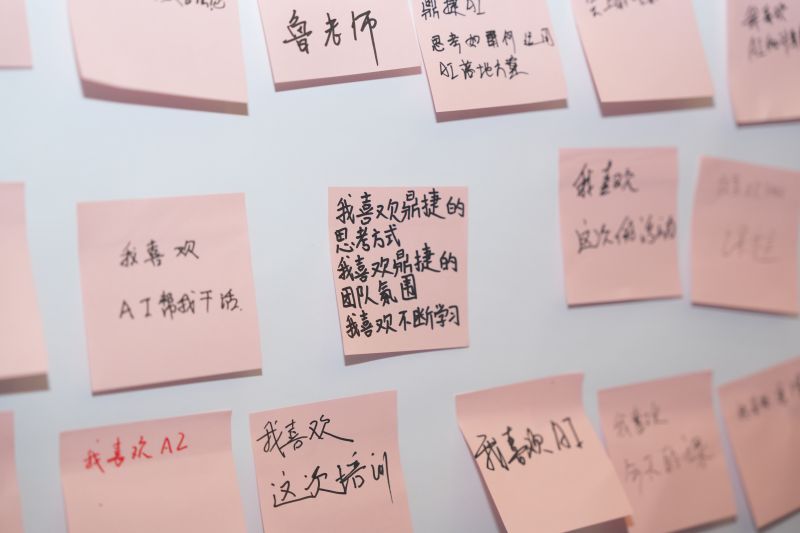 鲁老师
鼎捷AI
思考如果何运用
AI落地方案
我喜欢
我喜欢
AI帮我干活.
我喜欢鼎捷的
思考方式
我喜欢鼎捷的
团队氛围
我喜欢不断学习
我喜欢
这次的活动
我喜欢AI
我喜欢
这次培训
我喜欢AI
我喜欢
今天的课